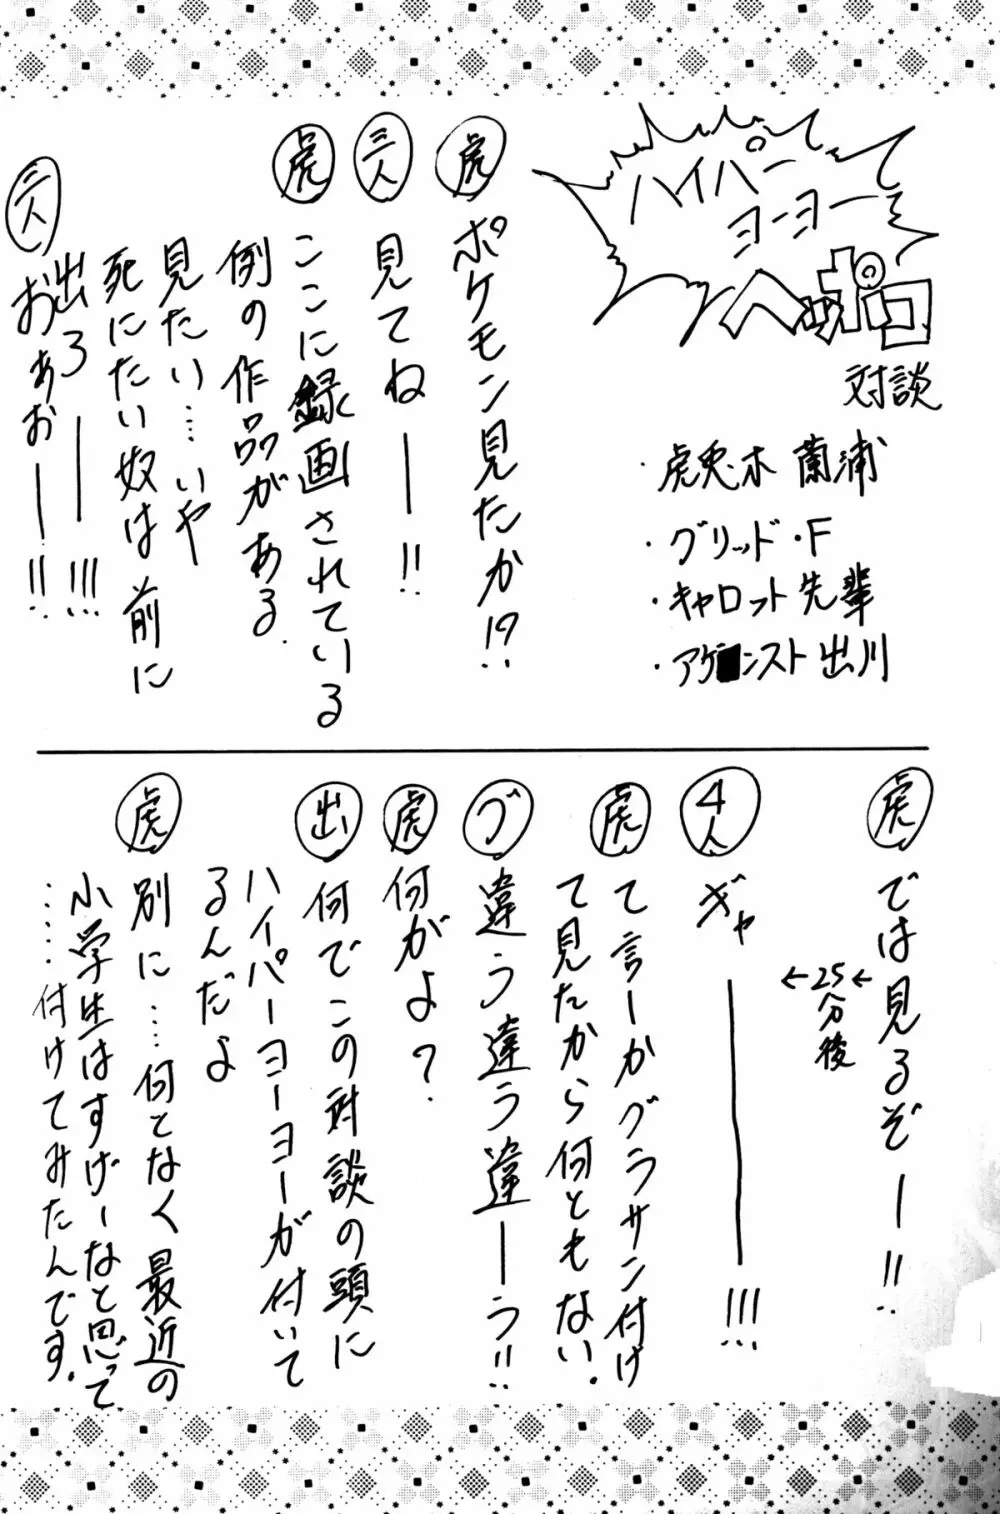 ハイパー
ヨーヨー
へっポコ
対談
・虎兎木 蘭浦
・グリッド・F
・キャロット先輩
・アゲンスト出川
虎 ポケモン見たか!?
三人 見てねー!!
虎 ここに録画されている
例の作品がある.
見たい……いや
死にたい奴は前に
出ろー!!!
三人 おぁおー!!
虎 では見るぞー!!
←25分後←
4人 ギャー!!!
虎 て言ーかグラサン付け
て見たから何ともない.
グ 違う違う違ーう!!
虎 何がよ?
出 何でこの対談の頭に
ハイパーヨーヨーが付いて
るんだよ
虎 別に……何となく最近の
小学生はすげーなと思って
……付けてみたんです.